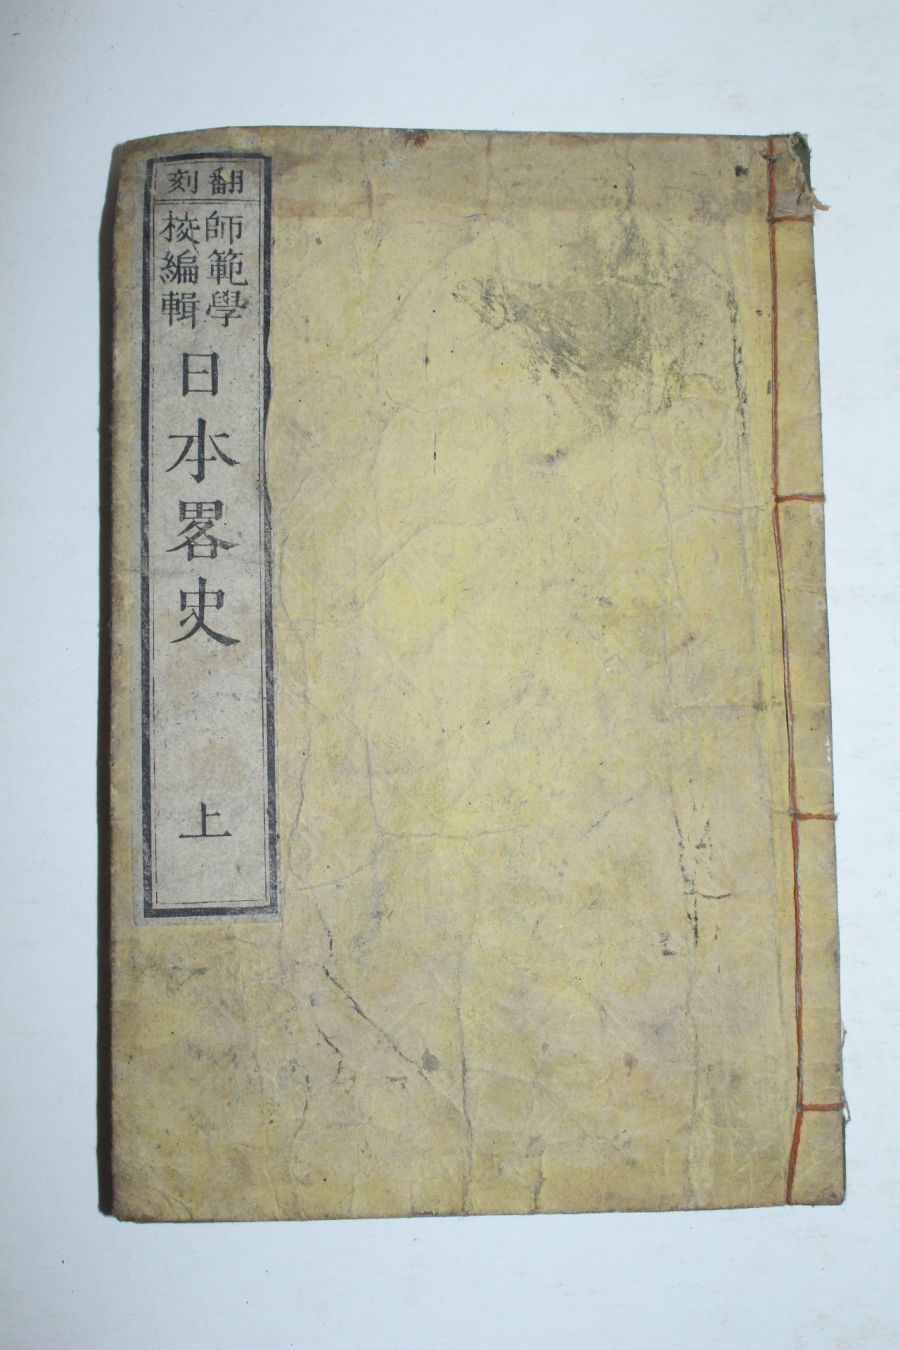 翻刻
師範學
校編輯
日本畧史
上